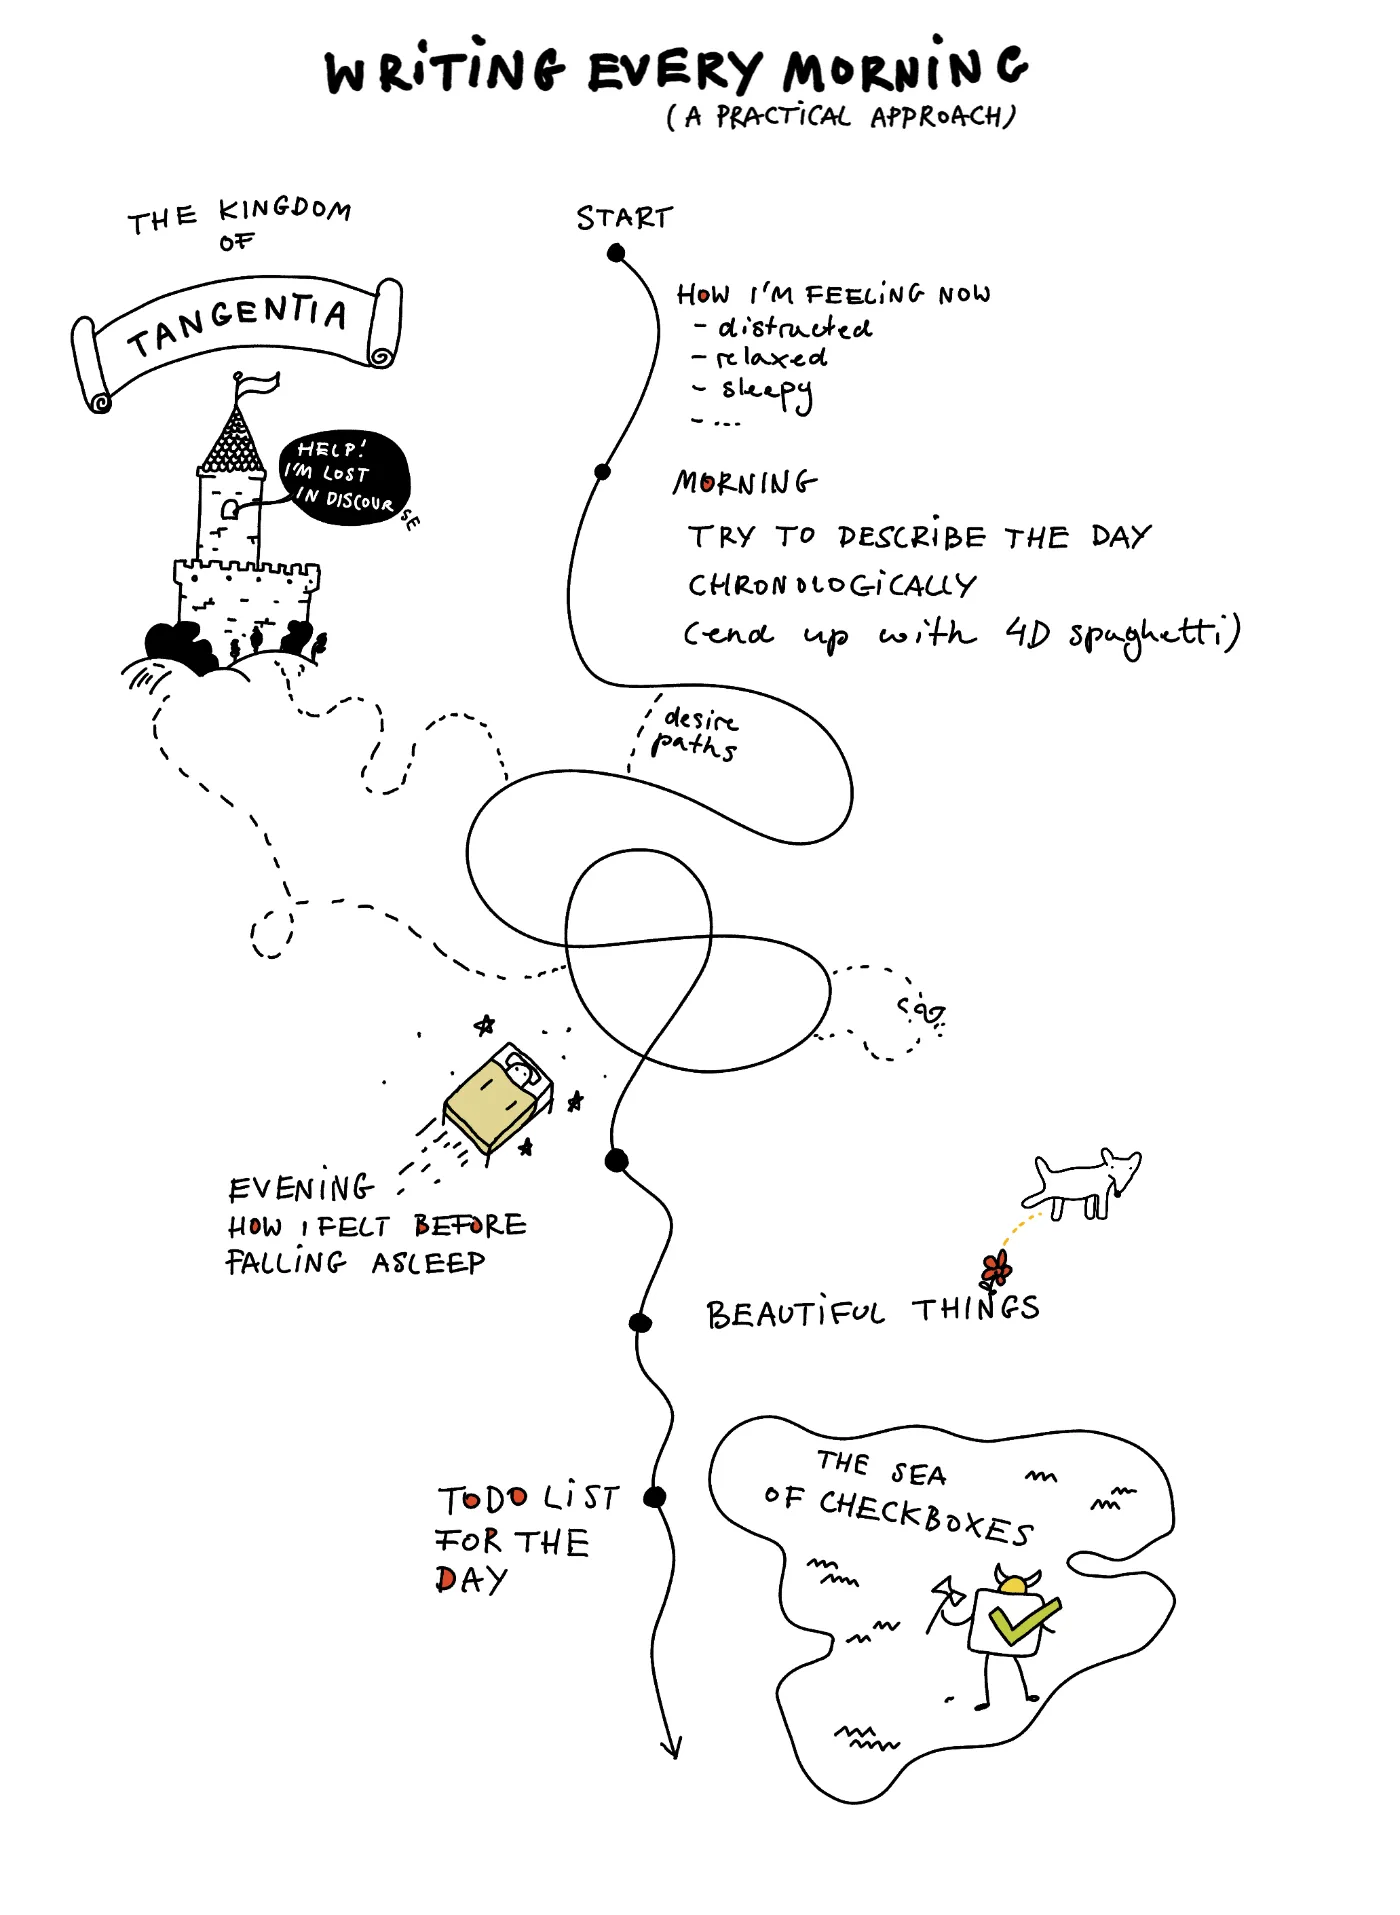 WRITING EVERY MORNING
(A PRACTICAL APPROACH)
THE KINGDOM
OF
TANGENTIA
HELP!
I'M LOST
IN DISCOURSE
START
HOW I'M FEELING NOW
- distracted
- relaxed
- sleepy
- ...
MORNING
TRY TO DESCRIBE THE DAY
CHRONOLOGICALLY
(end up with 4D spaghetti)
desire
paths
EVENING
HOW I FELT BEFORE
FALLING ASLEEP
BEAUTIFUL THINGS
TODO LIST
FOR THE
DAY
THE SEA
OF CHECKBOXES